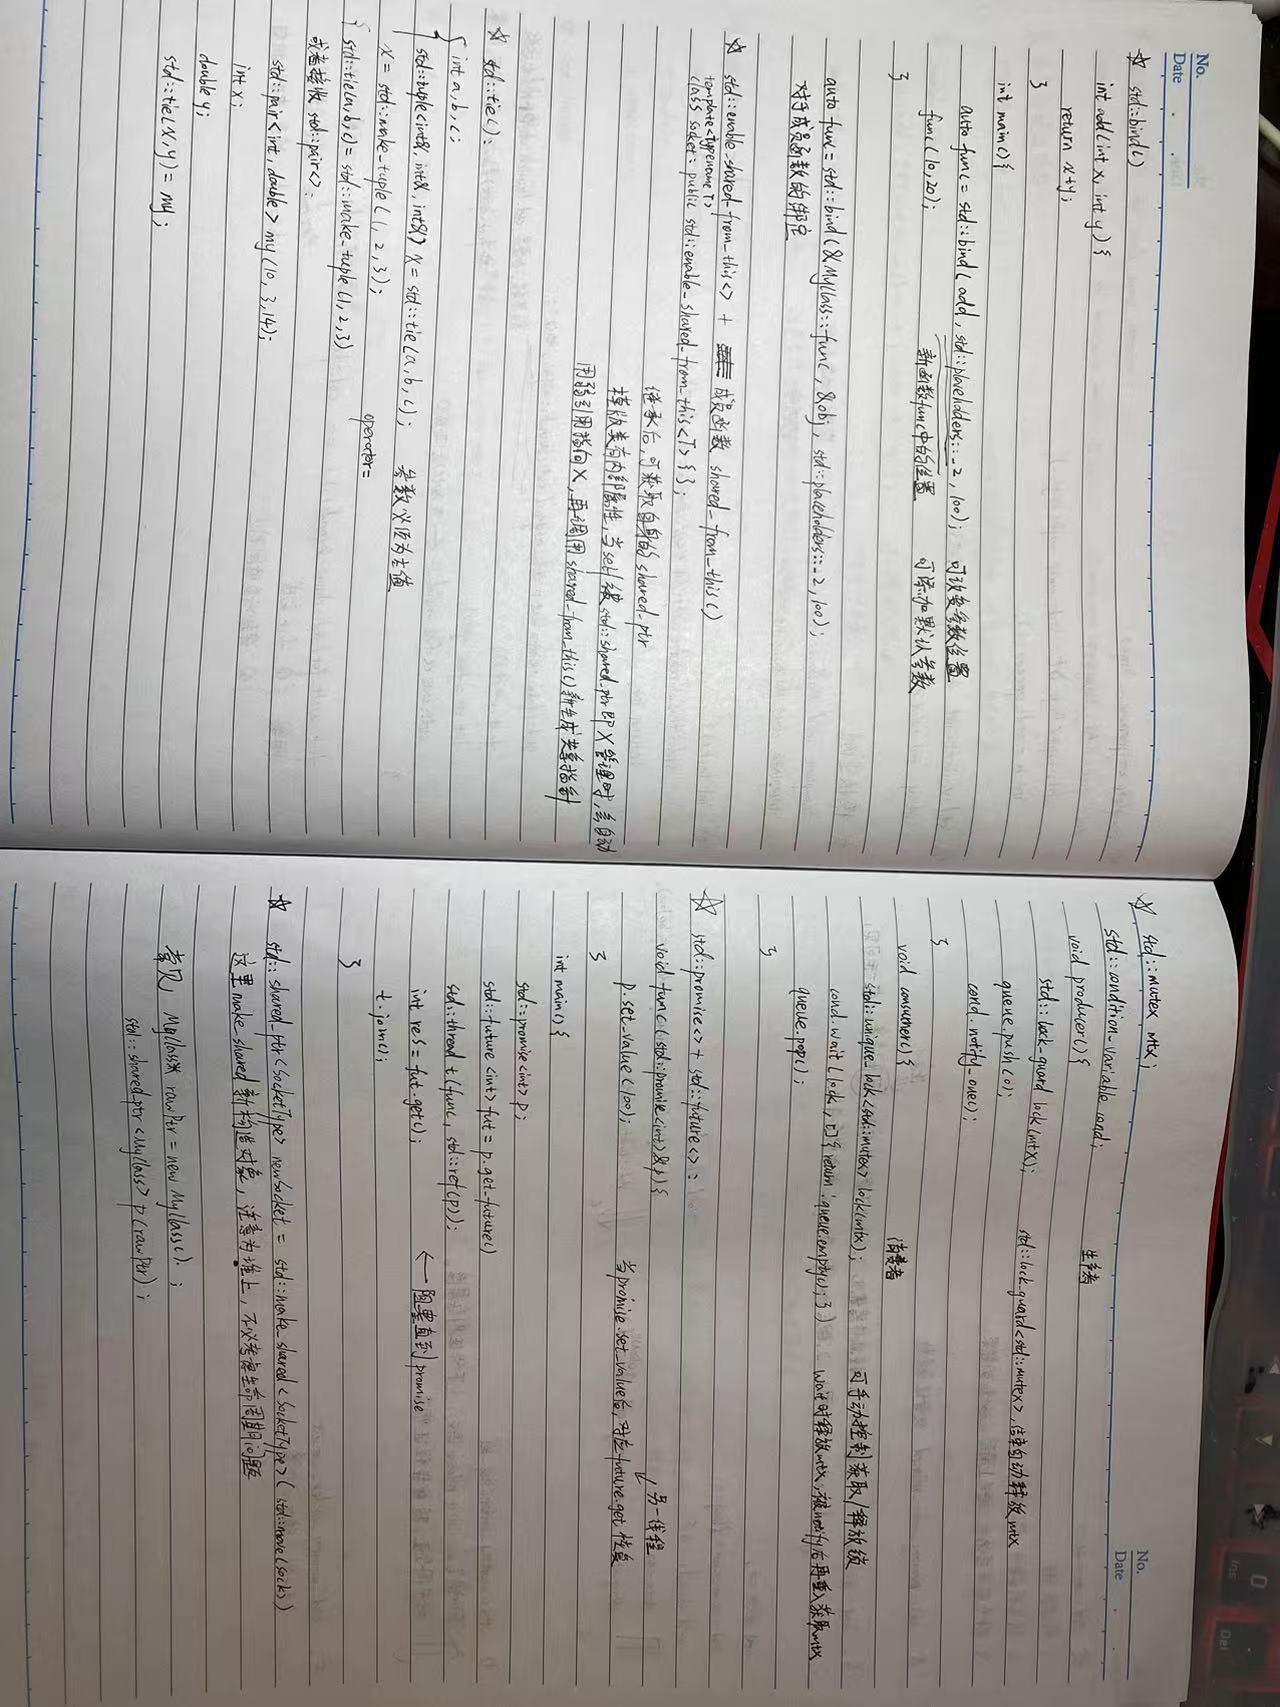 No.
Date
☆ std::bind()
int add(int x, int y){
return x+y;
}
int main(){
auto func = std::bind(add, std::placeholders::_2, 100); 可改变参数位置
func(10,20); 新函数func中的位置 可添加默认参数
}
auto func = std::bind(&MyClass::func, &obj, std::placeholders::_2, 100);
对于成员函数的绑定
☆ std::enable_shared_from_this<> + 成员函数 shared_from_this()
template<typename T>
class socket: public std::enable_shared_from_this<T>{ };
继承后,可获取自身的 shared_ptr
模版类有内部属性,当self被std::shared_ptr即X管理时,会自动
用弱引用指向X,再调用shared_from_this()新生成共享指针
☆ std::tie():
{ int a, b, c;
std::tuple<int&, int&, int&> x = std::tie(a, b, c); 参数必须为左值
x = std::make_tuple(1, 2, 3);
operator=
{ std::tie(a, b, c) = std::make_tuple(1, 2, 3)
或者接收 std::pair<>:
std::pair<int, double> my(10, 3.14);
int x;
double y;
std::tie(x, y) = my;
No.
Date
☆ std::mutex mtx;
std::condition_variable cond;
void producer(){ 生产者
std::lock_guard lock(mtx); std::lock_guard<std::mutex>,结束自动释放mtx
queue.push(0);
cond.notify_one();
}
void consumer(){ 消费者
std::unique_lock<std::mutex> lock(mtx); 可手动控制获取/释放锁
cond.wait(lock, []{ return !queue.empty(); }) wait时释放mtx,被notify后再重入获取mtx
queue.pop();
}
☆ std::promise<> + std::future<>:
void func(std::promise<int>& p){ 另一线程
p.set_value(100); 当promise.set_value后,对应future.get恢复
}
int main(){
std::promise<int> p;
std::future<int> fut = p.get_future()
std::thread t(func, std::ref(p));
int res = fut.get(); ← 阻塞直到promise
t.join();
}
☆ std::shared_ptr<SocketType> newSocket = std::make_shared<SocketType>(std::move(sock))
这里make_shared新构造对象,注意为堆上,不必考虑生命周期问题
常见, MyClass* rawPtr = new MyClass();
std::shared_ptr<MyClass> p(rawPtr);
Ins
0
Del